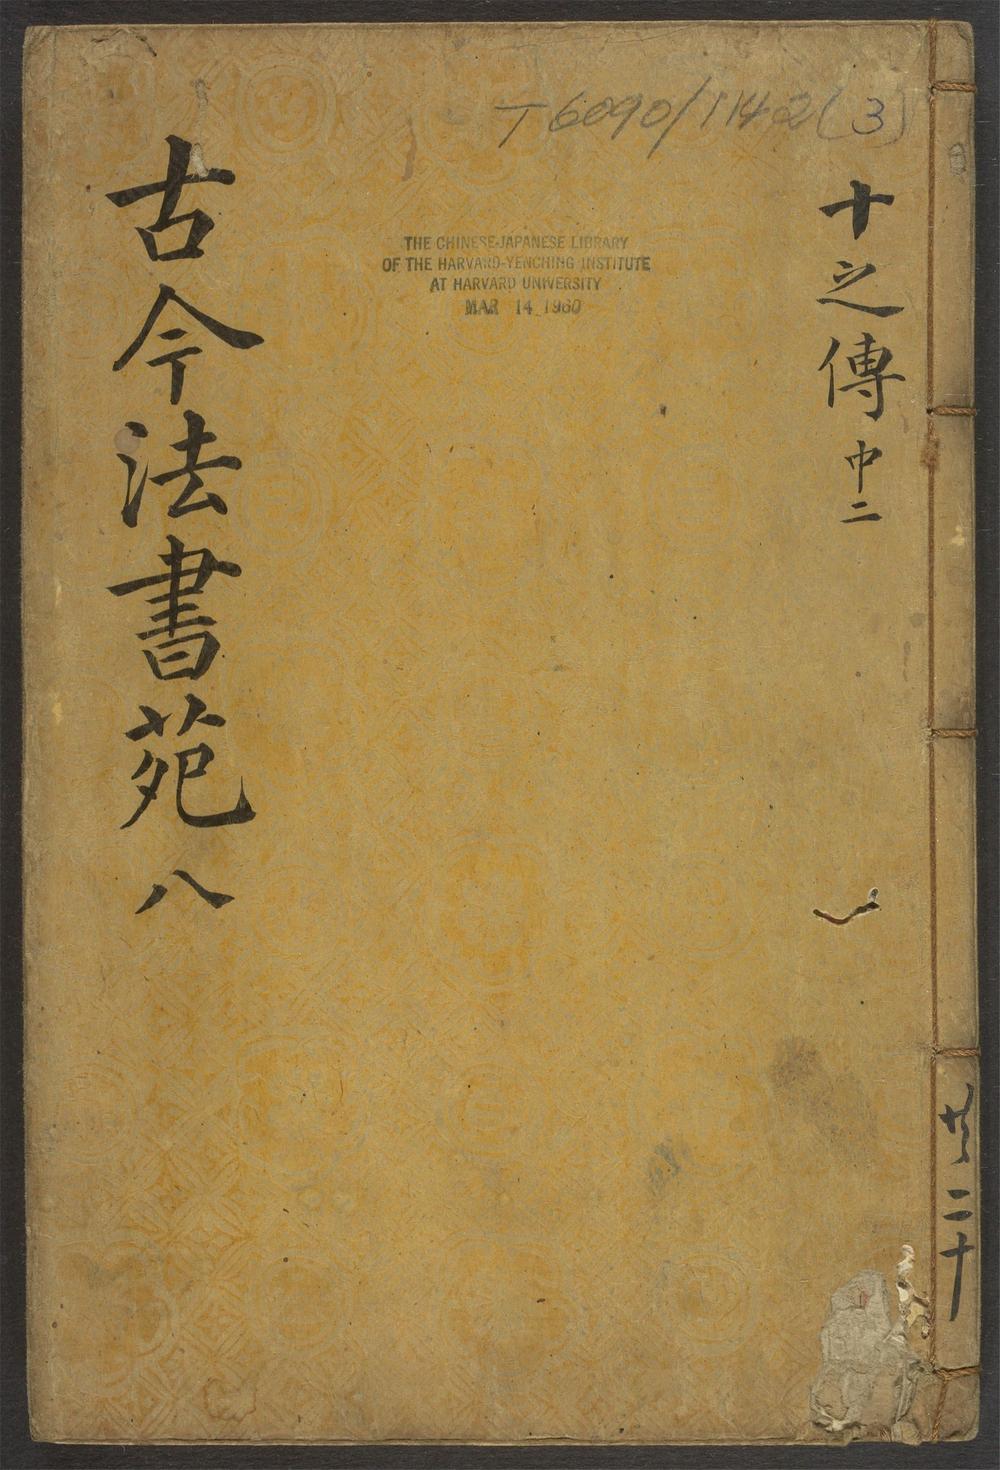 T 6090/1142(3)
十之傳 中二
THE CHINESE-JAPANESE LIBRARY
OF THE HARVARD-YENCHING INSTITUTE
AT HARVARD UNIVERSITY
MAR 14 1960
古今法書苑 八
共二十